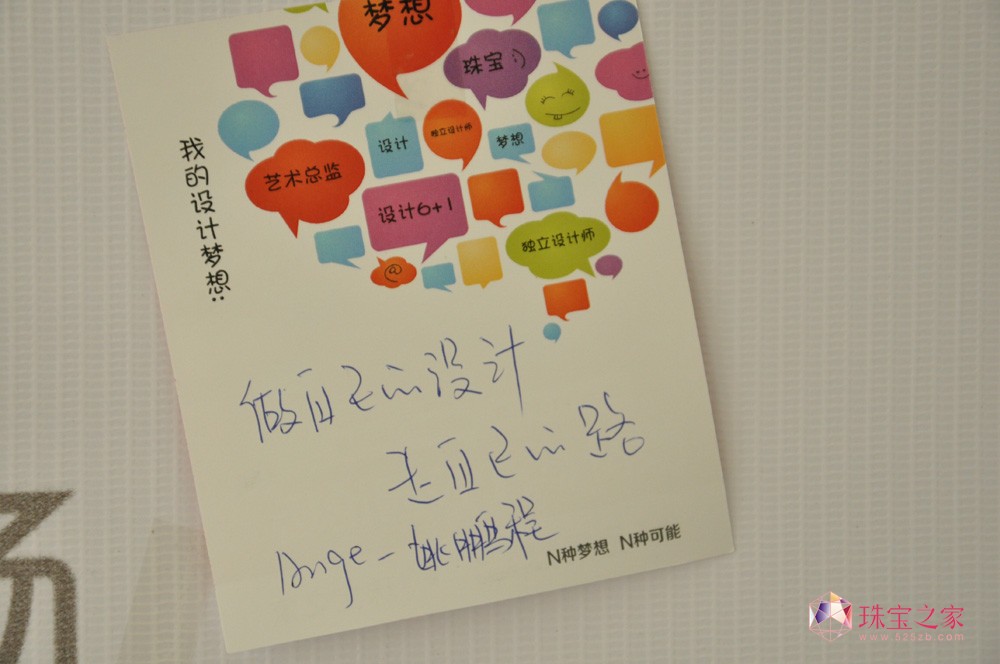 梦想
珠宝:)
独立设计师
设计
梦想
艺术总监
设计6+1
独立设计师
@
我的设计梦想:
做自己的设计
走自己的路
Ange－姚鹏程
N种梦想 N种可能
珠宝之家
www.525zb.com